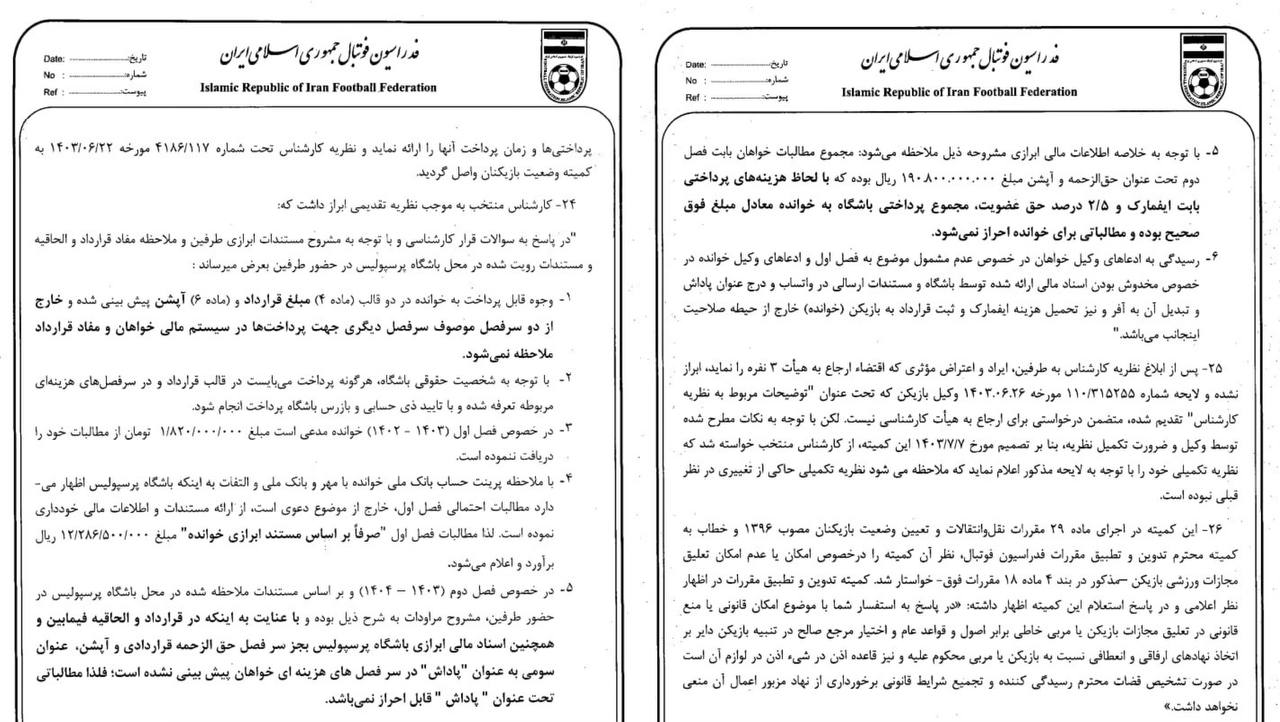 فدراسیون فوتبال جمهوری اسلامی ایران
Islamic Republic of Iran Football Federation
Date: ............ تاریخ:
No : ............ شماره:
Ref : ............ پیوست:
پرداختی‌ها و زمان پرداخت آنها را ارائه نماید و نظریه کارشناس تحت شماره ۴۱۸۶/۱۱۷ مورخه ۱۴۰۳/۰۶/۲۲ به
کمیته وضعیت بازیکنان واصل گردید.
۲۴- کارشناس منتخب به موجب نظریه تقدیمی ابراز داشت که:
"در پاسخ به سوالات قرار کارشناسی و با توجه به مشروح مستندات ابرازی طرفین و ملاحظه مفاد قرارداد و الحاقیه
و مستندات رویت شده در محل باشگاه پرسپولیس در حضور طرفین بعرض میرساند :
۱- وجوه قابل پرداخت به خوانده در دو قالب (ماده ۴) مبلغ قرارداد و (ماده ۶) آپشن پیش بینی شده و خارج
از دو سرفصل موصوف سرفصل دیگری جهت پرداخت‌ها در سیستم مالی خواهان و مفاد قرارداد
ملاحظه نمی‌شود.
۲- با توجه به شخصیت حقوقی باشگاه، هرگونه پرداخت می‌بایست در قالب قرارداد و در سرفصل‌های هزینه‌ای
مربوطه تعرفه شده و با تایید ذی حسابی و بازرس باشگاه پرداخت انجام شود.
۳- در خصوص فصل اول (۱۴۰۳ - ۱۴۰۲) خوانده مدعی است مبلغ ۱/۸۲۰/۰۰۰/۰۰۰ تومان از مطالبات خود را
دریافت ننموده است.
۴- با ملاحظه پرینت حساب بانک ملی خوانده با مهر و بانک ملی و التفات به اینکه باشگاه پرسپولیس اظهار می-
دارد مطالبات احتمالی فصل اول، خارج از موضوع دعوی است، از ارائه مستندات و اطلاعات مالی خودداری
نموده است. لذا مطالبات فصل اول "صرفاً بر اساس مستند ابرازی خوانده" مبلغ ۱۲/۲۸۶/۵۰۰/۰۰۰ ریال
برآورد و اعلام می‌شود.
۵- در خصوص فصل دوم (۱۴۰۳ – ۱۴۰۴) و بر اساس مستندات ملاحظه شده در محل باشگاه پرسپولیس در
حضور طرفین، مشروح مراودات به شرح ذیل بوده و با عنایت به اینکه در قرارداد و الحاقیه فیمابین و
همچنین اسناد مالی ابرازی باشگاه پرسپولیس بجز سر فصل حق الزحمه قراردادی و آپشن، عنوان
سومی به عنوان "پاداش" در سر فصل های هزینه ای خواهان پیش بینی نشده است؛ فلذا مطالباتی
تحت عنوان " پاداش " قابل احراز نمی‌باشد.
فدراسیون فوتبال جمهوری اسلامی ایران
Islamic Republic of Iran Football Federation
Date: ............ تاریخ:
No : ............ شماره:
Ref : ............ پیوست:
۵- با توجه به خلاصه اطلاعات مالی ابرازی مشروحه ذیل ملاحظه می‌شود: مجموع مطالبات خواهان بابت فصل
دوم تحت عنوان حق‌الزحمه و آپشن مبلغ ۱۹۰.۸۰۰.۰۰۰.۰۰۰ ریال بوده که با لحاظ هزینه‌های پرداختی
بابت ایفمارک و ۲/۵ درصد حق عضویت، مجموع پرداختی باشگاه به خوانده معادل مبلغ فوق
صحیح بوده و مطالباتی برای خوانده احراز نمی‌شود.
۶- رسیدگی به ادعاهای وکیل خواهان در خصوص عدم مشمول موضوع به فصل اول و ادعاهای وکیل خوانده در
خصوص مخدوش بودن اسناد مالی ارائه شده توسط باشگاه و مستندات ارسالی در واتساب و درج عنوان پاداش
و تبدیل آن به آفر و نیز تحمیل هزینه ایفمارک و ثبت قرارداد به بازیکن (خوانده) خارج از حیطه صلاحیت
اینجانب می‌باشد."
۲۵- پس از ابلاغ نظریه کارشناس به طرفین، ایراد و اعتراض مؤثری که اقتضاء ارجاع به هیأت ۳ نفره را نماید، ابراز
نشده و لایحه شماره ۱۱۰/۳۱۵۲۵۵ مورخه ۱۴۰۳.۰۶.۲۶ وکیل بازیکن که تحت عنوان "توضیحات مربوط به نظریه
کارشناس" تقدیم شده، متضمن درخواستی برای ارجاع به هیأت کارشناسی نیست. لکن با توجه به نکات مطرح شده
توسط وکیل و ضرورت تکمیل نظریه، بنا بر تصمیم مورخ ۱۴۰۳/۷/۷ این کمیته، از کارشناس منتخب خواسته شد که
نظریه تکمیلی خود را با توجه به لایحه مذکور اعلام نماید که ملاحظه می شود نظریه تکمیلی حاکی از تغییری در نظر
قبلی نبوده است.
۲۶- این کمیته در اجرای ماده ۲۹ مقررات نقل‌وانتقالات و تعیین وضعیت بازیکنان مصوب ۱۳۹۶ و خطاب به
کمیته محترم تدوین و تطبیق مقررات فدراسیون فوتبال، نظر آن کمیته را درخصوص امکان یا عدم امکان تعلیق
مجازات ورزشی بازیکن –مذکور در بند ۴ ماده ۱۸ مقررات فوق- خواستار شد. کمیته تدوین و تطبیق مقررات در اظهار
نظر اعلامی و در پاسخ استعلام این کمیته اظهار داشته: «در پاسخ به استفسار شما با موضوع امکان قانونی یا منع
قانونی در تعلیق مجازات بازیکن یا مربی خاطی برابر اصول و قواعد عام و اختیار مرجع صالح در تنبیه بازیکن دایر بر
اتخاذ نهادهای ارفاقی و انعطافی نسبت به بازیکن یا مربی محکوم علیه و نیز قاعده اذن در شیء اذن در لوازم آن است
در صورت تشخیص قضات محترم رسیدگی کننده و تجمیع شرایط قانونی برخورداری از نهاد مزبور اعمال آن منعی
نخواهد داشت.»